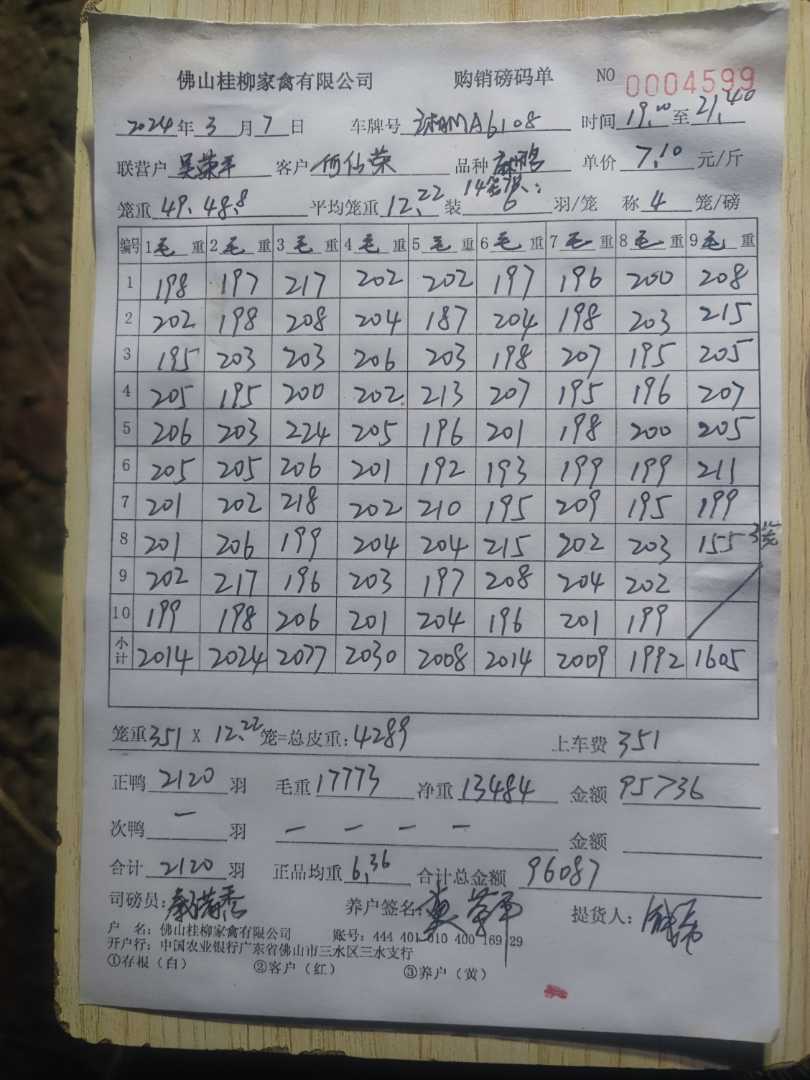 佛山桂柳家禽有限公司 购销磅码单 NO 0004599
2024年3月7日 车牌号 A6108 时间19.00至21.40
联营户 吴荣平 客户 何仙荣 品种 单价 7.10 元/斤
14笼
笼重49.48.8 平均笼重12.22装 6 羽/笼 称 4 笼/磅
编号 1毛重 2毛重 3毛重 4毛重 5毛重 6毛重 7毛重 8毛重 9毛重
1 198 197 217 202 202 197 196 200 208
2 202 198 208 204 187 204 198 203 215
3 195 203 203 206 203 198 207 195 205
4 205 195 200 202 213 207 195 196 207
5 206 203 224 205 196 201 198 200 205
6 205 205 206 201 192 193 199 199 211
7 201 202 218 202 210 195 209 195 199
8 201 206 199 204 204 215 202 203 155 3笼
9 202 217 196 203 197 208 204 202
10 199 198 206 201 204 196 201 199
小计 2014 2024 2077 2030 2008 2014 2009 1992 1605
笼重351 X 12.22笼=总皮重:4289 上车费 351
正鸭 2120 羽 毛重17773 净重13484 金额 95736
次鸭 — 羽 — — — — 金额
合计 2120 羽 正品均重6.36 合计总金额 96087
司磅员: 养户签名: 吴荣平 提货人:
户 名: 佛山桂柳家禽有限公司 账号: 444 401 010 400 169 29
开户行: 中国农业银行广东省佛山市三水区三水支行
①存根(白) ②客户(红) ③养户(黄)